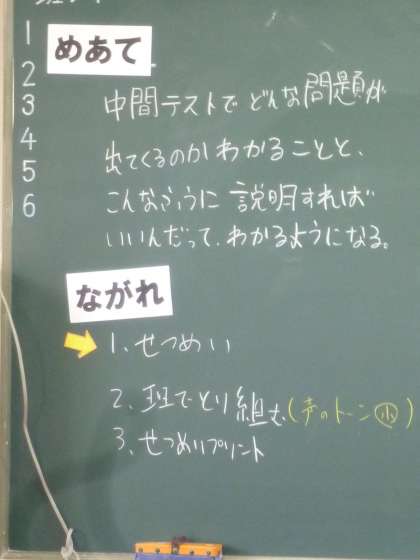 1
2
3
4
5
6
めあて
中間テストでどんな問題が
出てくるのかわかることと、
こんなふうに説明すれば
いいんだって、わかるようになる。
ながれ
1、せつめい
2、班でとり組む(声のトーン小)
3、せつめいプリント